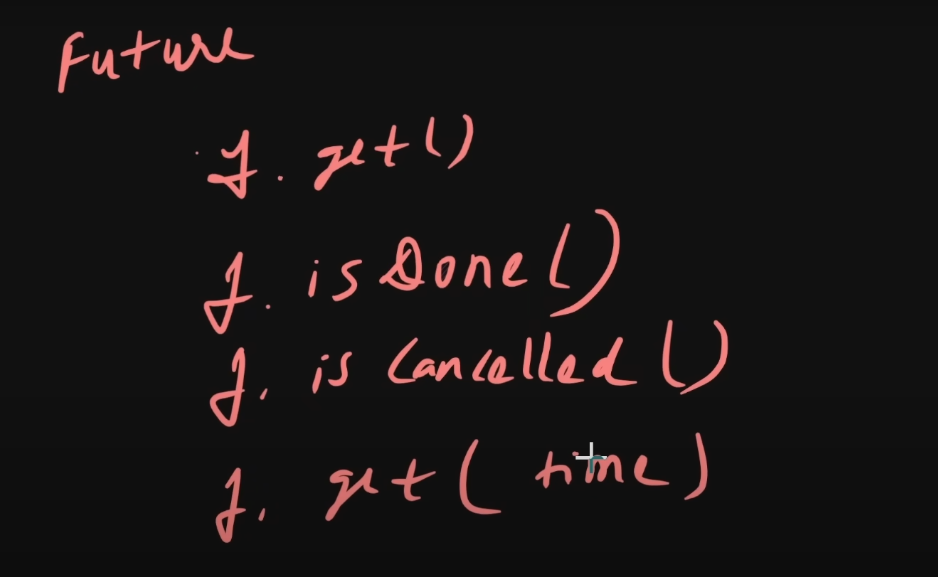 Future
f. get()
f. isDone()
f. isCancelled()
f. get(time)